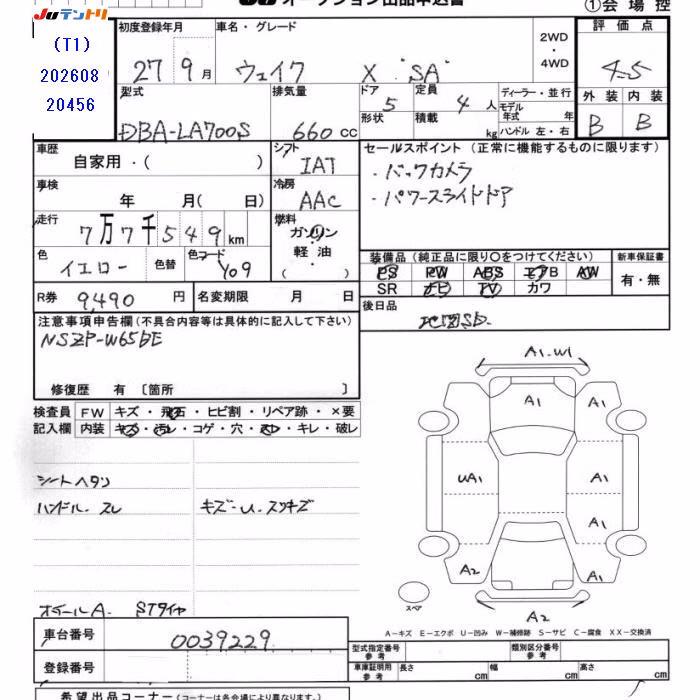 JUテントリ
(T1)
202608
20456
JU オークション出品申込書
①会場控
初度登録年月 車名・グレード 2WD・4WD 評価点
27-9月 ウェイク X "SA" 4.5
型式 排気量 ドア 定員 ディーラー・並行 外装 内装
DBA-LA700S 660cc 5 4人 モデル年式 年 B B
形状 積載 kg ハンドル 左・右
車歴 自家用・( ) シフト IAT
セールスポイント (正常に機能するものに限ります)
・バックカメラ
・パワースライドドア
車検 年 月(日) 冷房 AAC
走行 7万7千549km 燃料 ガソリン
軽油
・( )
色 イエロー 色替 色コード Y09
装備品 (純正品に限り〇をつけてください) 新車保証書
PS PW ABS エアB AW 有・無
SR ナビ TV カワ
R券 9,490円 名変期限 月 日
後日品 地図SD.
注意事項申告欄 (不具合内容等は具体的に記入して下さい)
NSZP-W65DE
修復歴 有 〔箇所 〕
検査員 FW キズ・飛石・ヒビ割・リペア跡・×要
記入欄 内装 キズ・汚レ・コゲ・穴・スレ・キレ・破レ
シートヘタリ
ハンドル.スレ キズ-U.スリキズ
オイールA. STタイヤ
A1.W1
A1 A1
UA1 A1
A1
A2 A1
スペア
A2
A-キズ E-エクボ U-凹み W-補修跡 S-サビ C-腐食 XX-交換済
車台番号 0039229
登録番号
型式指定番号 参考 類別区分番号 参考
車庫証明用 参考 長さ cm 幅 cm 高さ cm
希望出品コーナー (コーナーは各会場により異なります。)